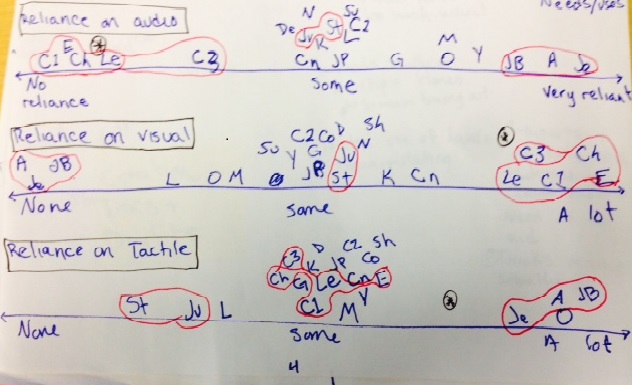 Needs/uses
Reliance on audio
N Su
De Ju St C2
E K L M
C1 Ch Le C3 Cn JP G O Y JB A Ja
No reliance Some Very reliant
Reliance on visual
Sh
C2 Co D N
A JB Su Y G Ju C3 Ch
Ja L O M JP St K Cn Le C1 E
None some A lot
Reliance on Tactile
C3 D C2 Sh
K JP Co
Ch G Le Cn E A JB
St Ju L C1 M Y Ja O
None Some A lot
4